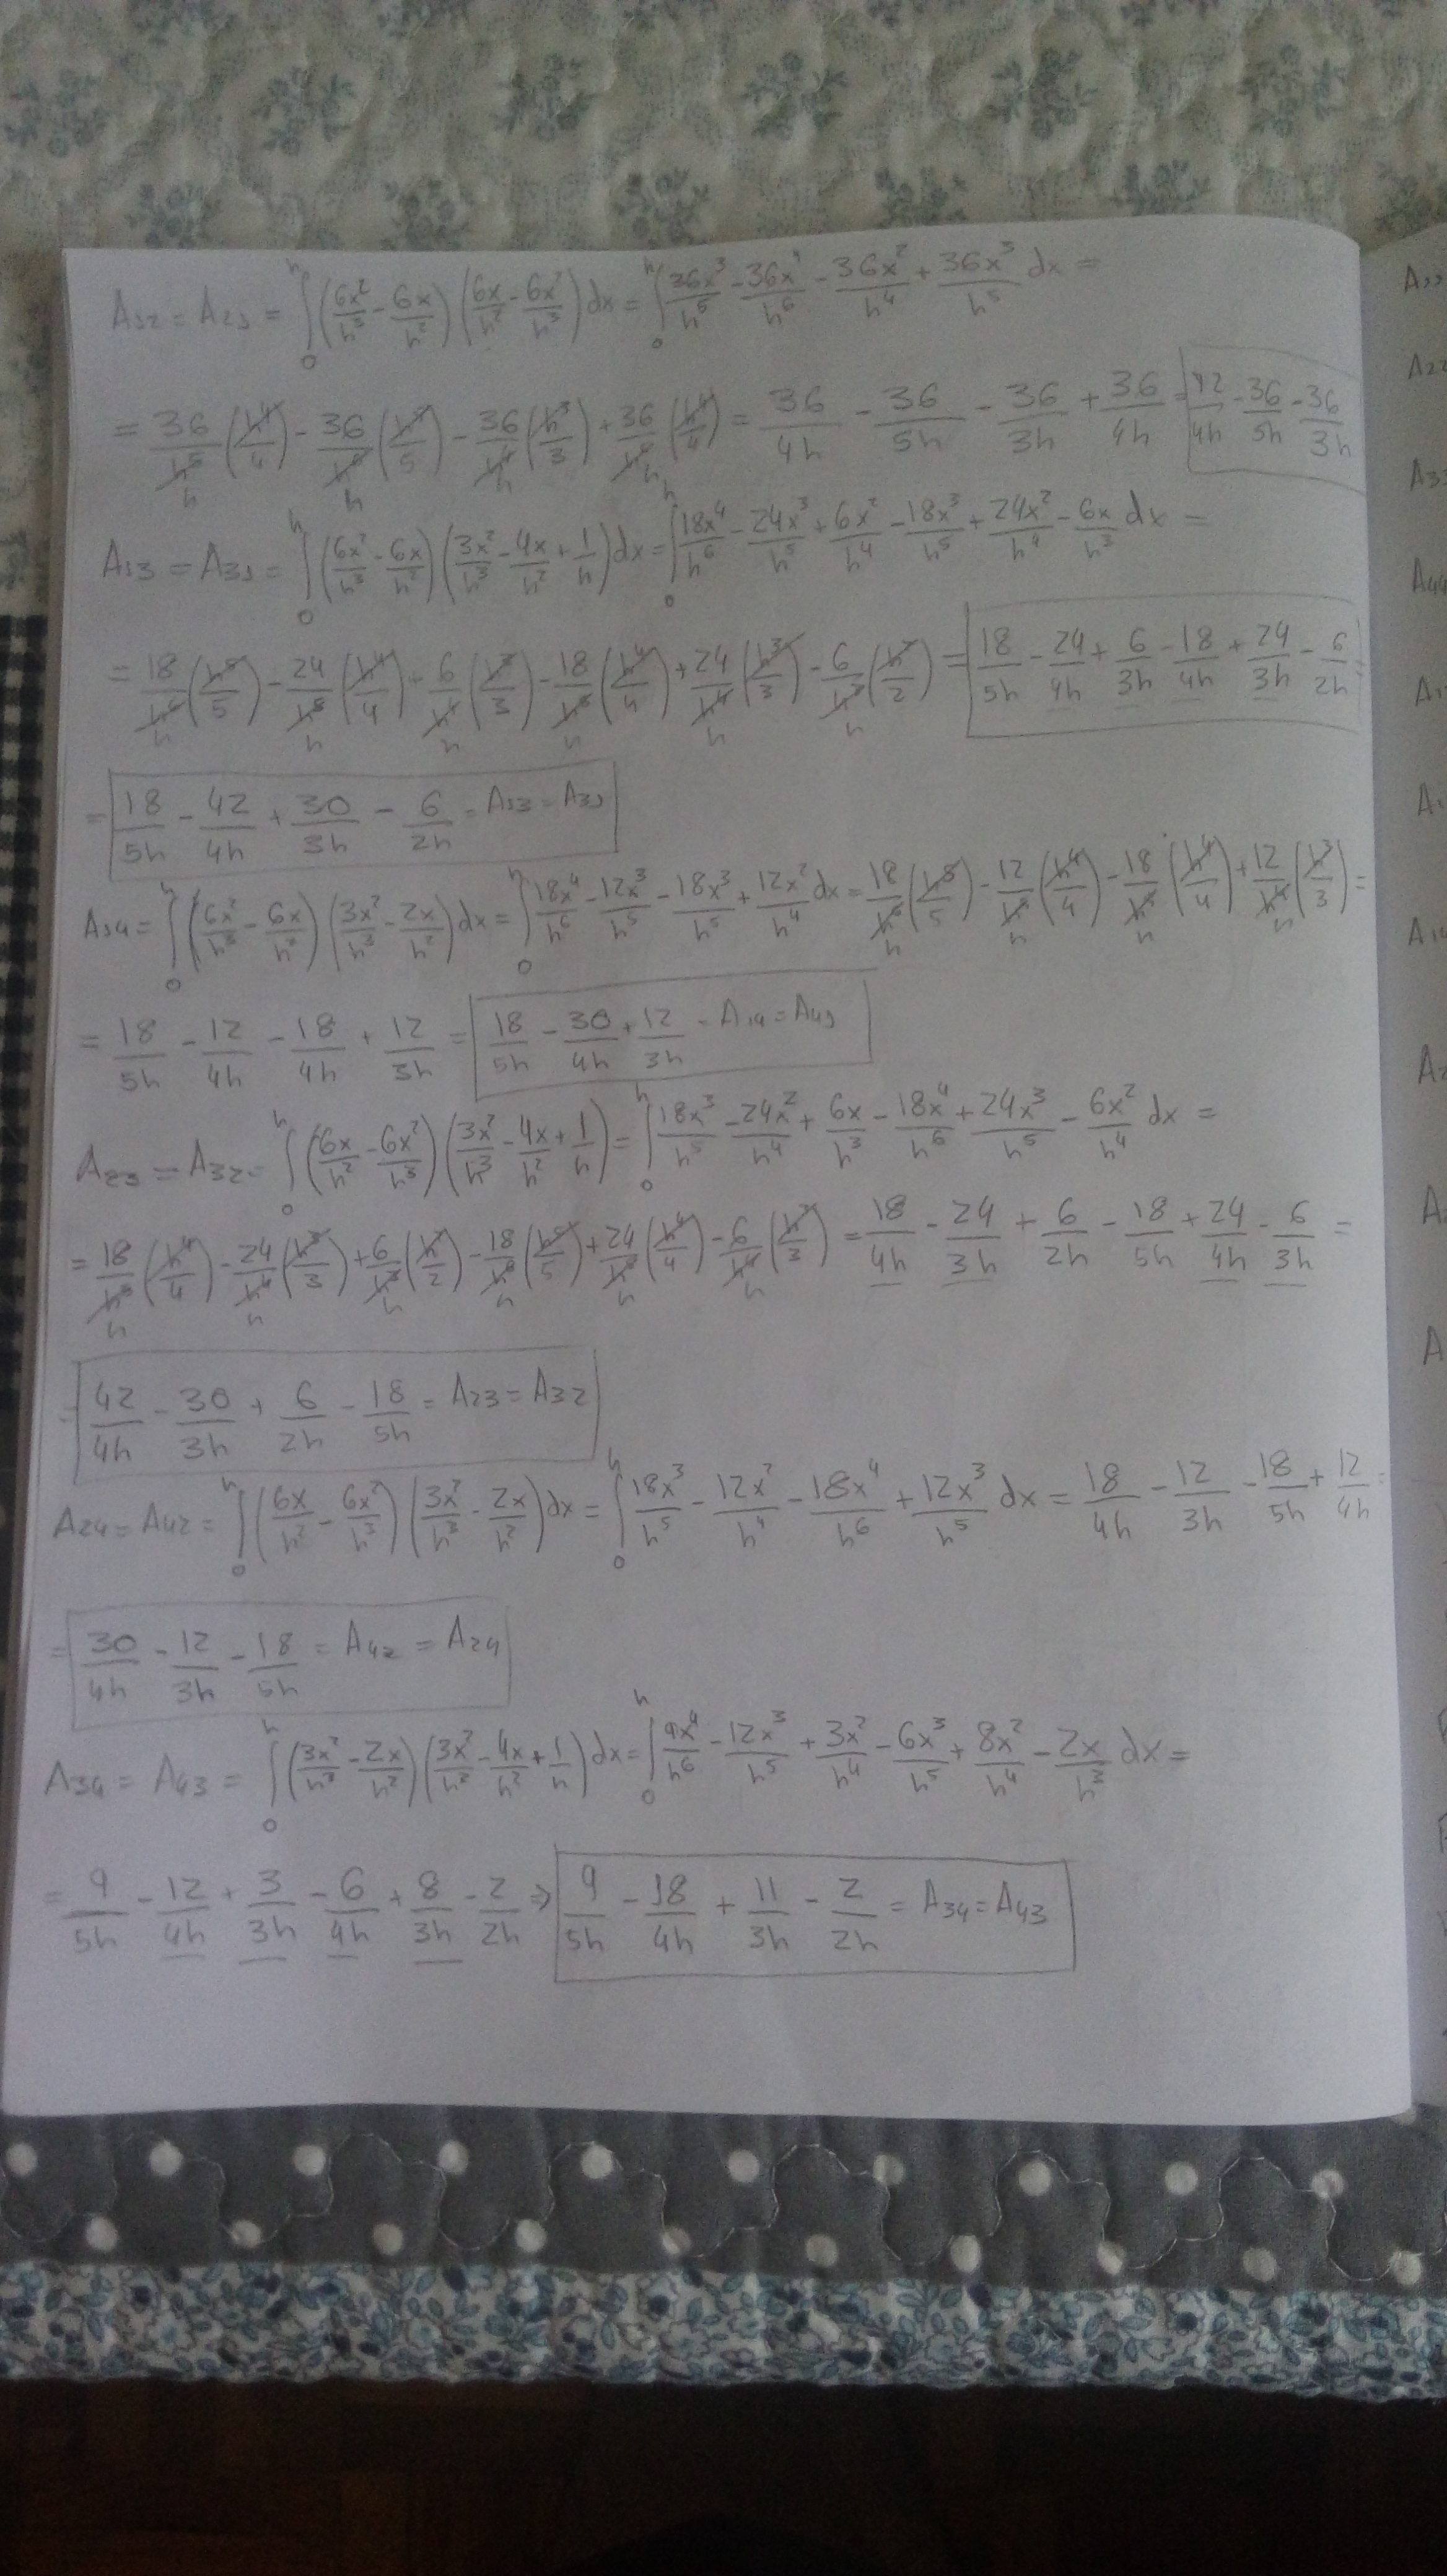 A₁₂ = A₂₁ = ∫₀ʰ (6x²/h³ - 6x/h²)(6x/h² - 6x²/h³) dx = ∫₀ʰ 36x³/h⁵ - 36x⁴/h⁶ - 36x²/h⁴ + 36x³/h⁵ dx =
= 36/h⁵ (h⁴/4) - 36/h⁶ (h⁵/5) - 36/h⁴ (h³/3) + 36/h⁵ (h⁴/4) = 36/4h - 36/5h - 36/3h + 36/4h = 72/4h - 36/5h - 36/3h
A₁₃ = A₃₁ = ∫₀ʰ (6x²/h³ - 6x/h²)(3x²/h³ - 4x/h² + 1/h) dx = ∫₀ʰ 18x⁴/h⁶ - 24x³/h⁵ + 6x²/h⁴ - 18x³/h⁵ + 24x²/h⁴ - 6x/h³ dx =
= 18/h⁶ (h⁵/5) - 24/h⁵ (h⁴/4) + 6/h⁴ (h³/3) - 18/h⁵ (h⁴/4) + 24/h⁴ (h³/3) - 6/h³ (h²/2) = 18/5h - 24/4h + 6/3h - 18/4h + 24/3h - 6/2h =
= 18/5h - 42/4h + 30/3h - 6/2h = A₁₃ = A₃₁
A₁₄ = ∫₀ʰ (6x²/h³ - 6x/h²)(3x²/h³ - 2x/h²) dx = ∫₀ʰ 18x⁴/h⁶ - 12x³/h⁵ - 18x³/h⁵ + 12x²/h⁴ dx = 18/h⁶ (h⁵/5) - 12/h⁵ (h⁴/4) - 18/h⁵ (h⁴/4) + 12/h⁴ (h³/3) =
= 18/5h - 12/4h - 18/4h + 12/3h = 18/5h - 30/4h + 12/3h = A₁₄ = A₄₁
A₂₃ = A₃₂ = ∫₀ʰ (6x/h² - 6x²/h³)(3x²/h³ - 4x/h² + 1/h) = ∫₀ʰ 18x³/h⁵ - 24x²/h⁴ + 6x/h³ - 18x⁴/h⁶ + 24x³/h⁵ - 6x²/h⁴ dx =
= 18/h⁵ (h⁴/4) - 24/h⁴ (h³/3) + 6/h³ (h²/2) - 18/h⁶ (h⁵/5) + 24/h⁵ (h⁴/4) - 6/h⁴ (h³/3) = 18/4h - 24/3h + 6/2h - 18/5h + 24/4h - 6/3h =
= 42/4h - 30/3h + 6/2h - 18/5h = A₂₃ = A₃₂
A₂₄ = A₄₂ = ∫₀ʰ (6x/h² - 6x²/h³)(3x²/h³ - 2x/h²) dx = ∫₀ʰ 18x³/h⁵ - 12x²/h⁴ - 18x⁴/h⁶ + 12x³/h⁵ dx = 18/4h - 12/3h - 18/5h + 12/4h =
= 30/4h - 12/3h - 18/5h = A₄₂ = A₂₄
A₃₄ = A₄₃ = ∫₀ʰ (3x²/h³ - 2x/h²)(3x²/h³ - 4x/h² + 1/h) dx = ∫₀ʰ 9x⁴/h⁶ - 12x³/h⁵ + 3x²/h⁴ - 6x³/h⁵ + 8x²/h⁴ - 2x/h³ dx =
= 9/5h - 12/4h + 3/3h - 6/4h + 8/3h - 2/2h ⇒ 9/5h - 18/4h + 11/3h - 2/2h = A₃₄ = A₄₃